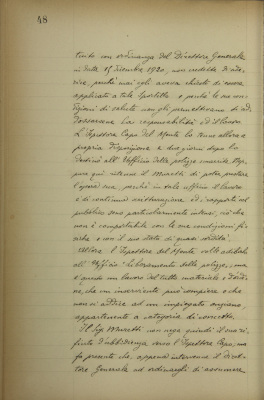 48
tendo con ordinanza del Direttore Generale
in data 15 dicembre 1920, non credette di ade-
rire, perchè mai egli aveva chiesto di essere
applicato a tale Sportello e perchè le sue con-
dizioni di salute non gli permettevano di ad-
dossarsene la responsabilità ed il lavoro.
L'Ispettore Capo del Monte lo tenne allora a
propria disposizione e due giorni dopo lo
destinò all'Ufficio delle polizze smarrite. Nep-
pure qui ritenne il Maratti di poter prestare
l'opera sua, perchè in tale ufficio il lavoro
è di continua scritturazione ed i rapporti col
pubblico sono particolarmente intensi, ciò che
non è compatibile con le sue condizioni fi-
siche e con il suo stato di quasi cecità.
Allora l'Ispettore del Monte volle adibirlo
all'Ufficio "bollamento delle polizze, ma
eseguendo un lavoro del tutto materiale,
ne, che un inserviente può compiere e che
non si addice ad un impiegato anziano
appartenente a categoria di concetto.
Il Sig. Maratti non nega quindi il suo ri-
fiuto d'obbedienza verso l'Ispettore Capo, ma
fa presente che, appena intervenne il Diret-
tore Generale ad ordinargli di assumere